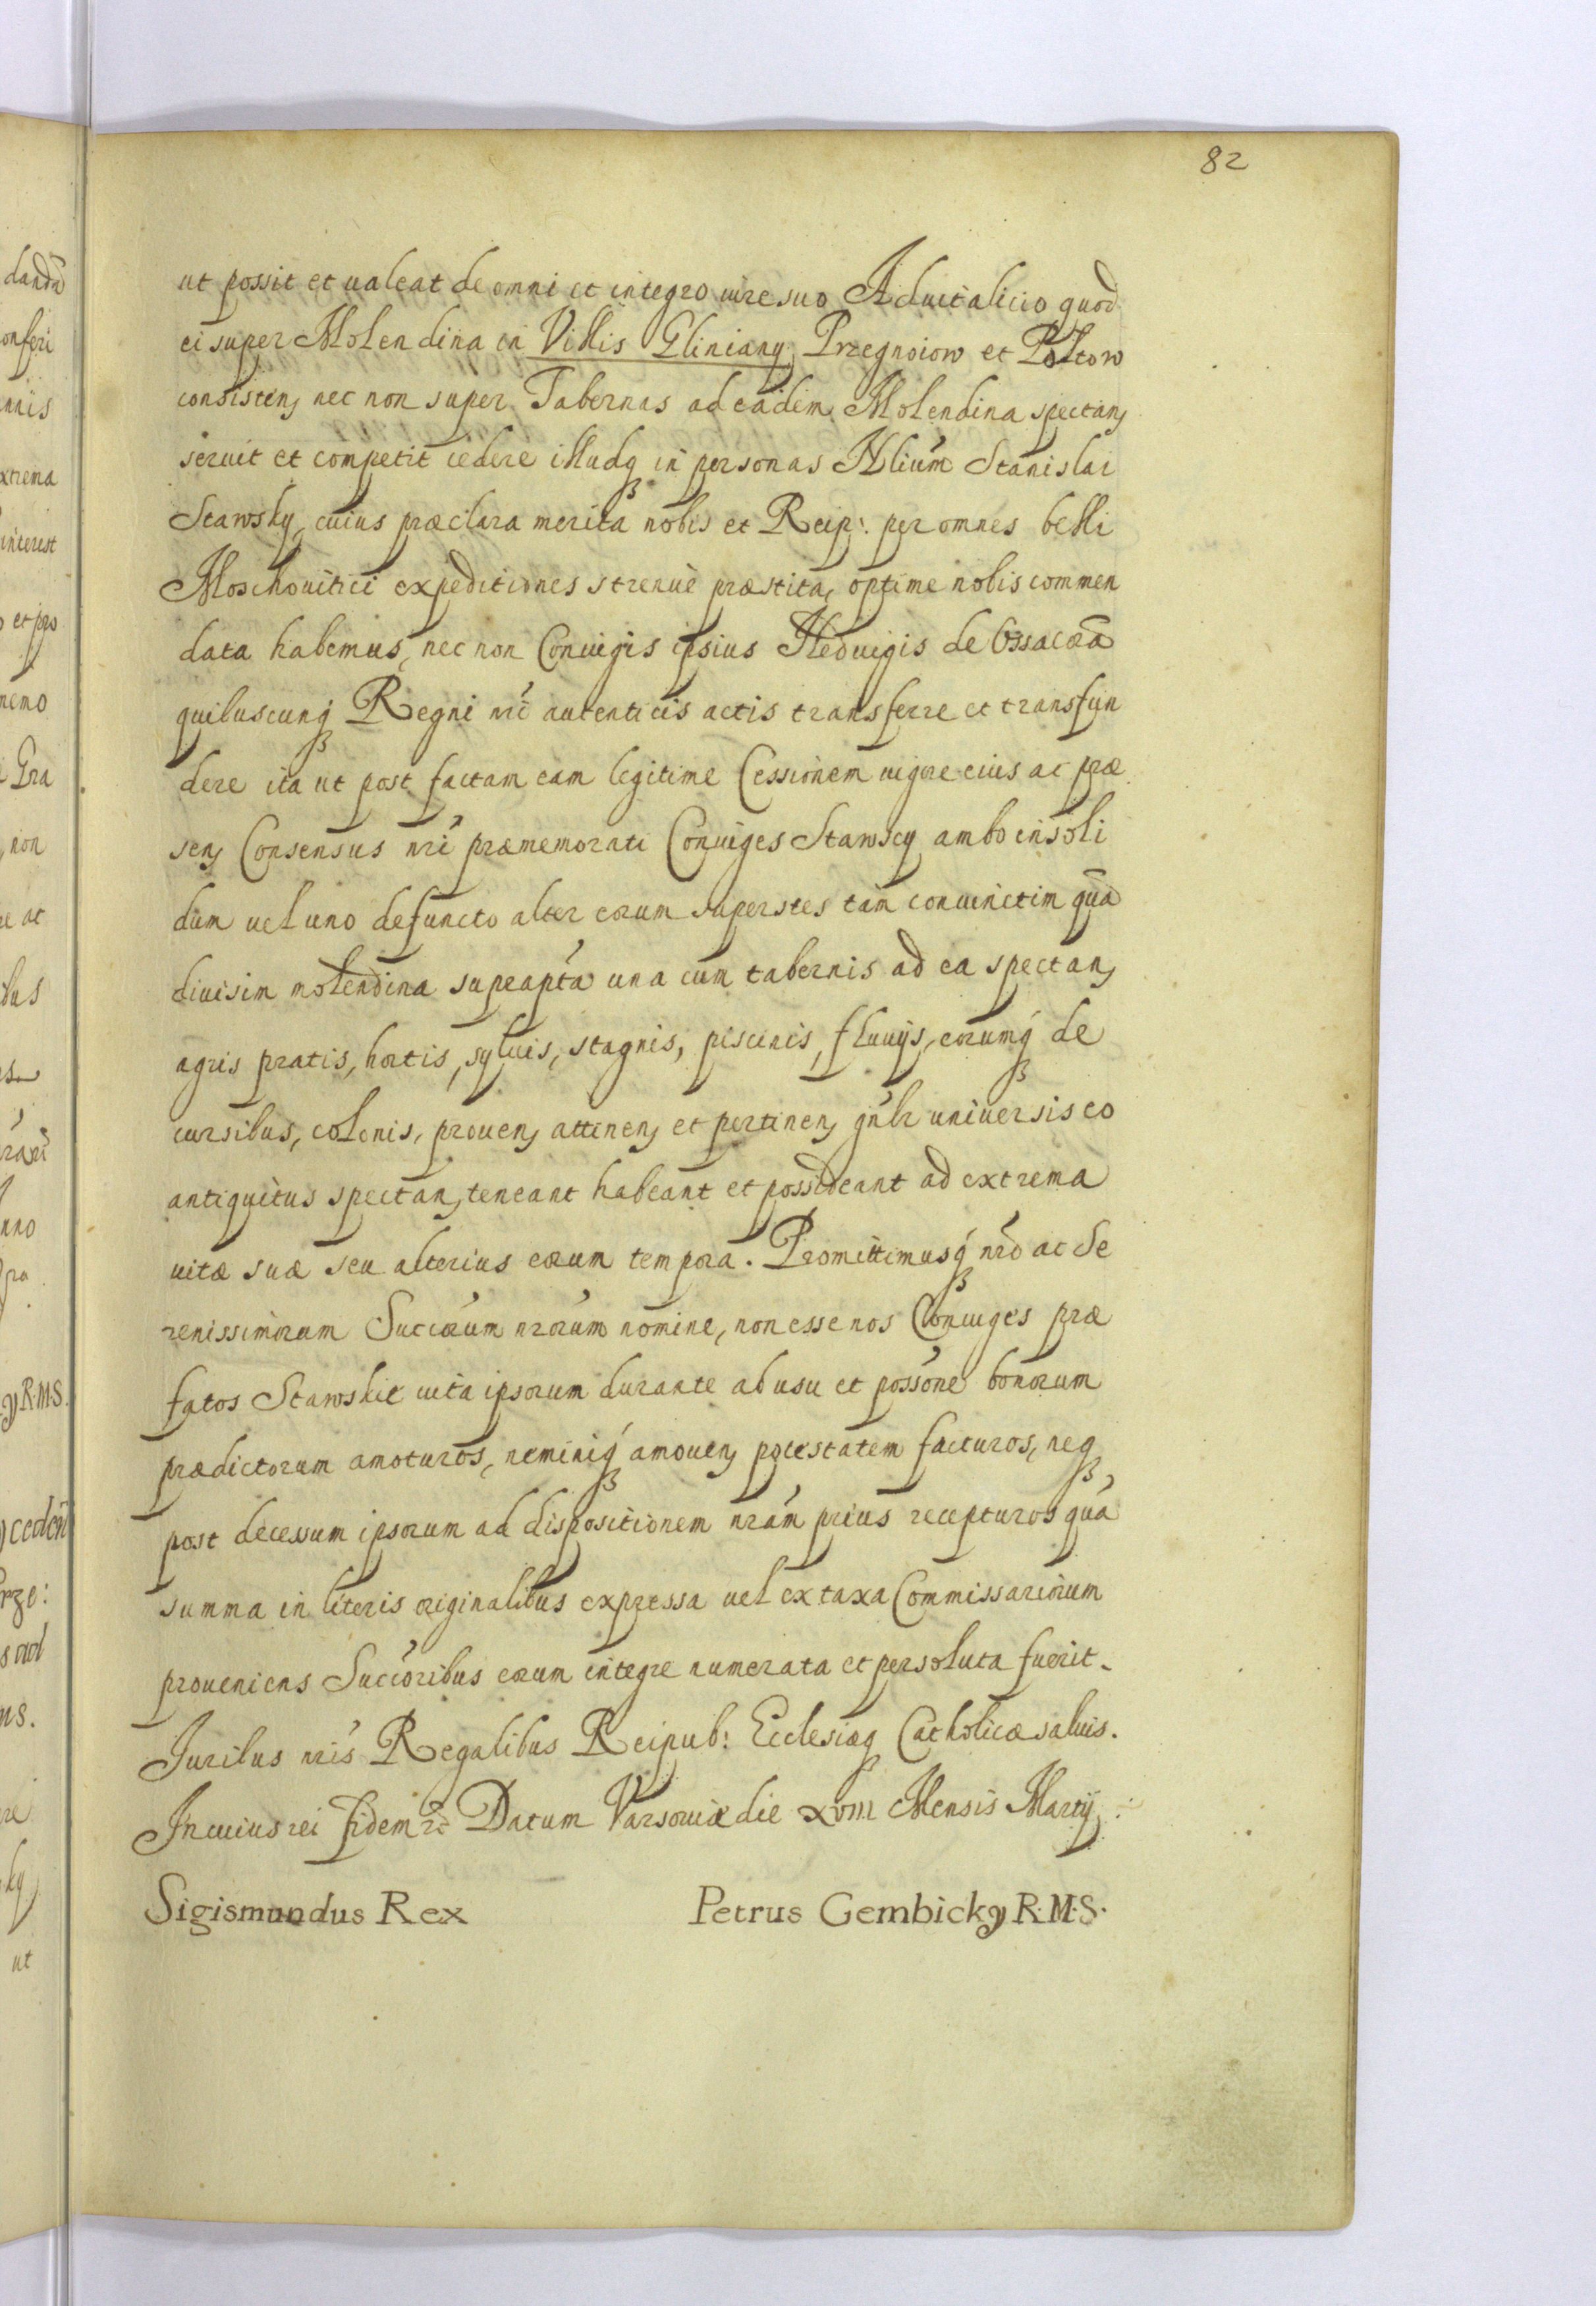 82
ut possit et ualeat de omni et integro iure suo Aduitalicio quod
ei super Molendina in Villis Gliniany, Przegnoiow et Poltow
consisten, nec non super Tabernas ad eadem Molendina spectan,
seruit et competit cedere illudq, in personas Nlium Stanislai
Stawsky, cuius præclara merita nobis et Reip: per omnes belli
Moschouitici expeditiones strenue præstita, optime nobis commen
data habemus, nec non Coniugis ipsius Heduigis de
quibuscunq, Regni nri autenticis actis transferre et transfun
dere ita ut post factam eam legitime Cessionem uigore eius ac præ
sen, Consensus nri præmemorati Coniuges Stawscy ambo insoli
dum uel uno defuncto alter eorum superstes tam coniunctim qua
diuisim molendina una cum tabernis ad ea spectan,
agris pratis, hortis, syluis, stagnis, piscinis, fluuijs, eorumq, de
cursibus, colonis, prouen, attinen, et pertinen, gnlr uniuersis eo
antiquitus spectan, teneant habeant et possideant ad extrema
uitæ suæ seu alterius eorum tempora. Promittimusq, nro ac Se
renissimorum Succorum nrorum nomine, non esse nos Coniuges præ
fatos Stawskie uita ipsorum durante ab usu et possone bonorum
prædictorum amoturos, neminiq, amouen, potestatem facturos, neq,
post decessum ipsorum ad dispositionem nram prius recepturos qua
summa in literis originalibus expressa uel ex taxa Commissariorum
proueniens Succoribus eorum integre numerata et persoluta fuerit.
Iuribus nris Regalibus Reipub: Ecclesiæq, Catholicæ saluis.
In cuius rei fidem rc Datum Varsouiæ die XVIII Mensis Martij :
Sigismundus Rex Petrus Gembicky R.M.S.